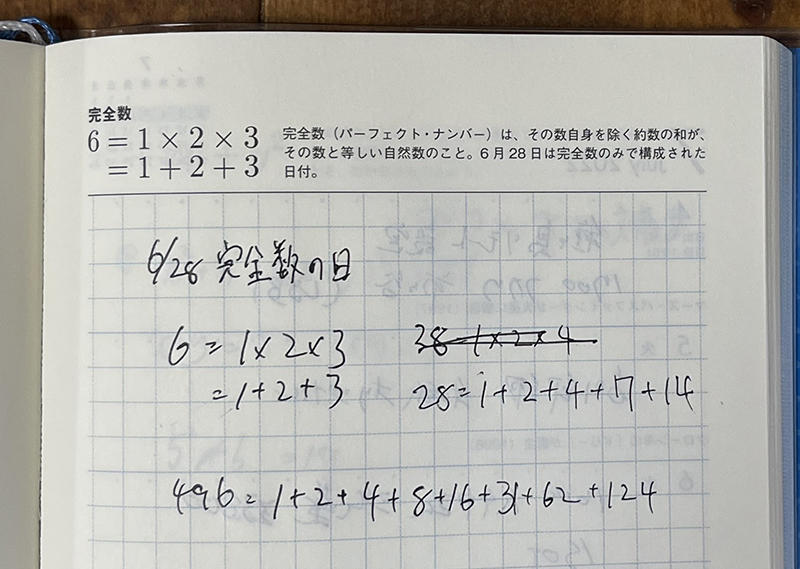 完全数
6 = 1 × 2 × 3
= 1 + 2 + 3
完全数（パーフェクト・ナンバー）は、その数自身を除く約数の和が、
その数と等しい自然数のこと。6月28日は完全数のみで構成された
日付。
6/28 完全数の日
6 = 1×2×3
= 1+2+3
38 1×2×4
28 = 1+2+4+7+14
496 = 1+2+4+8+16+31+62+124